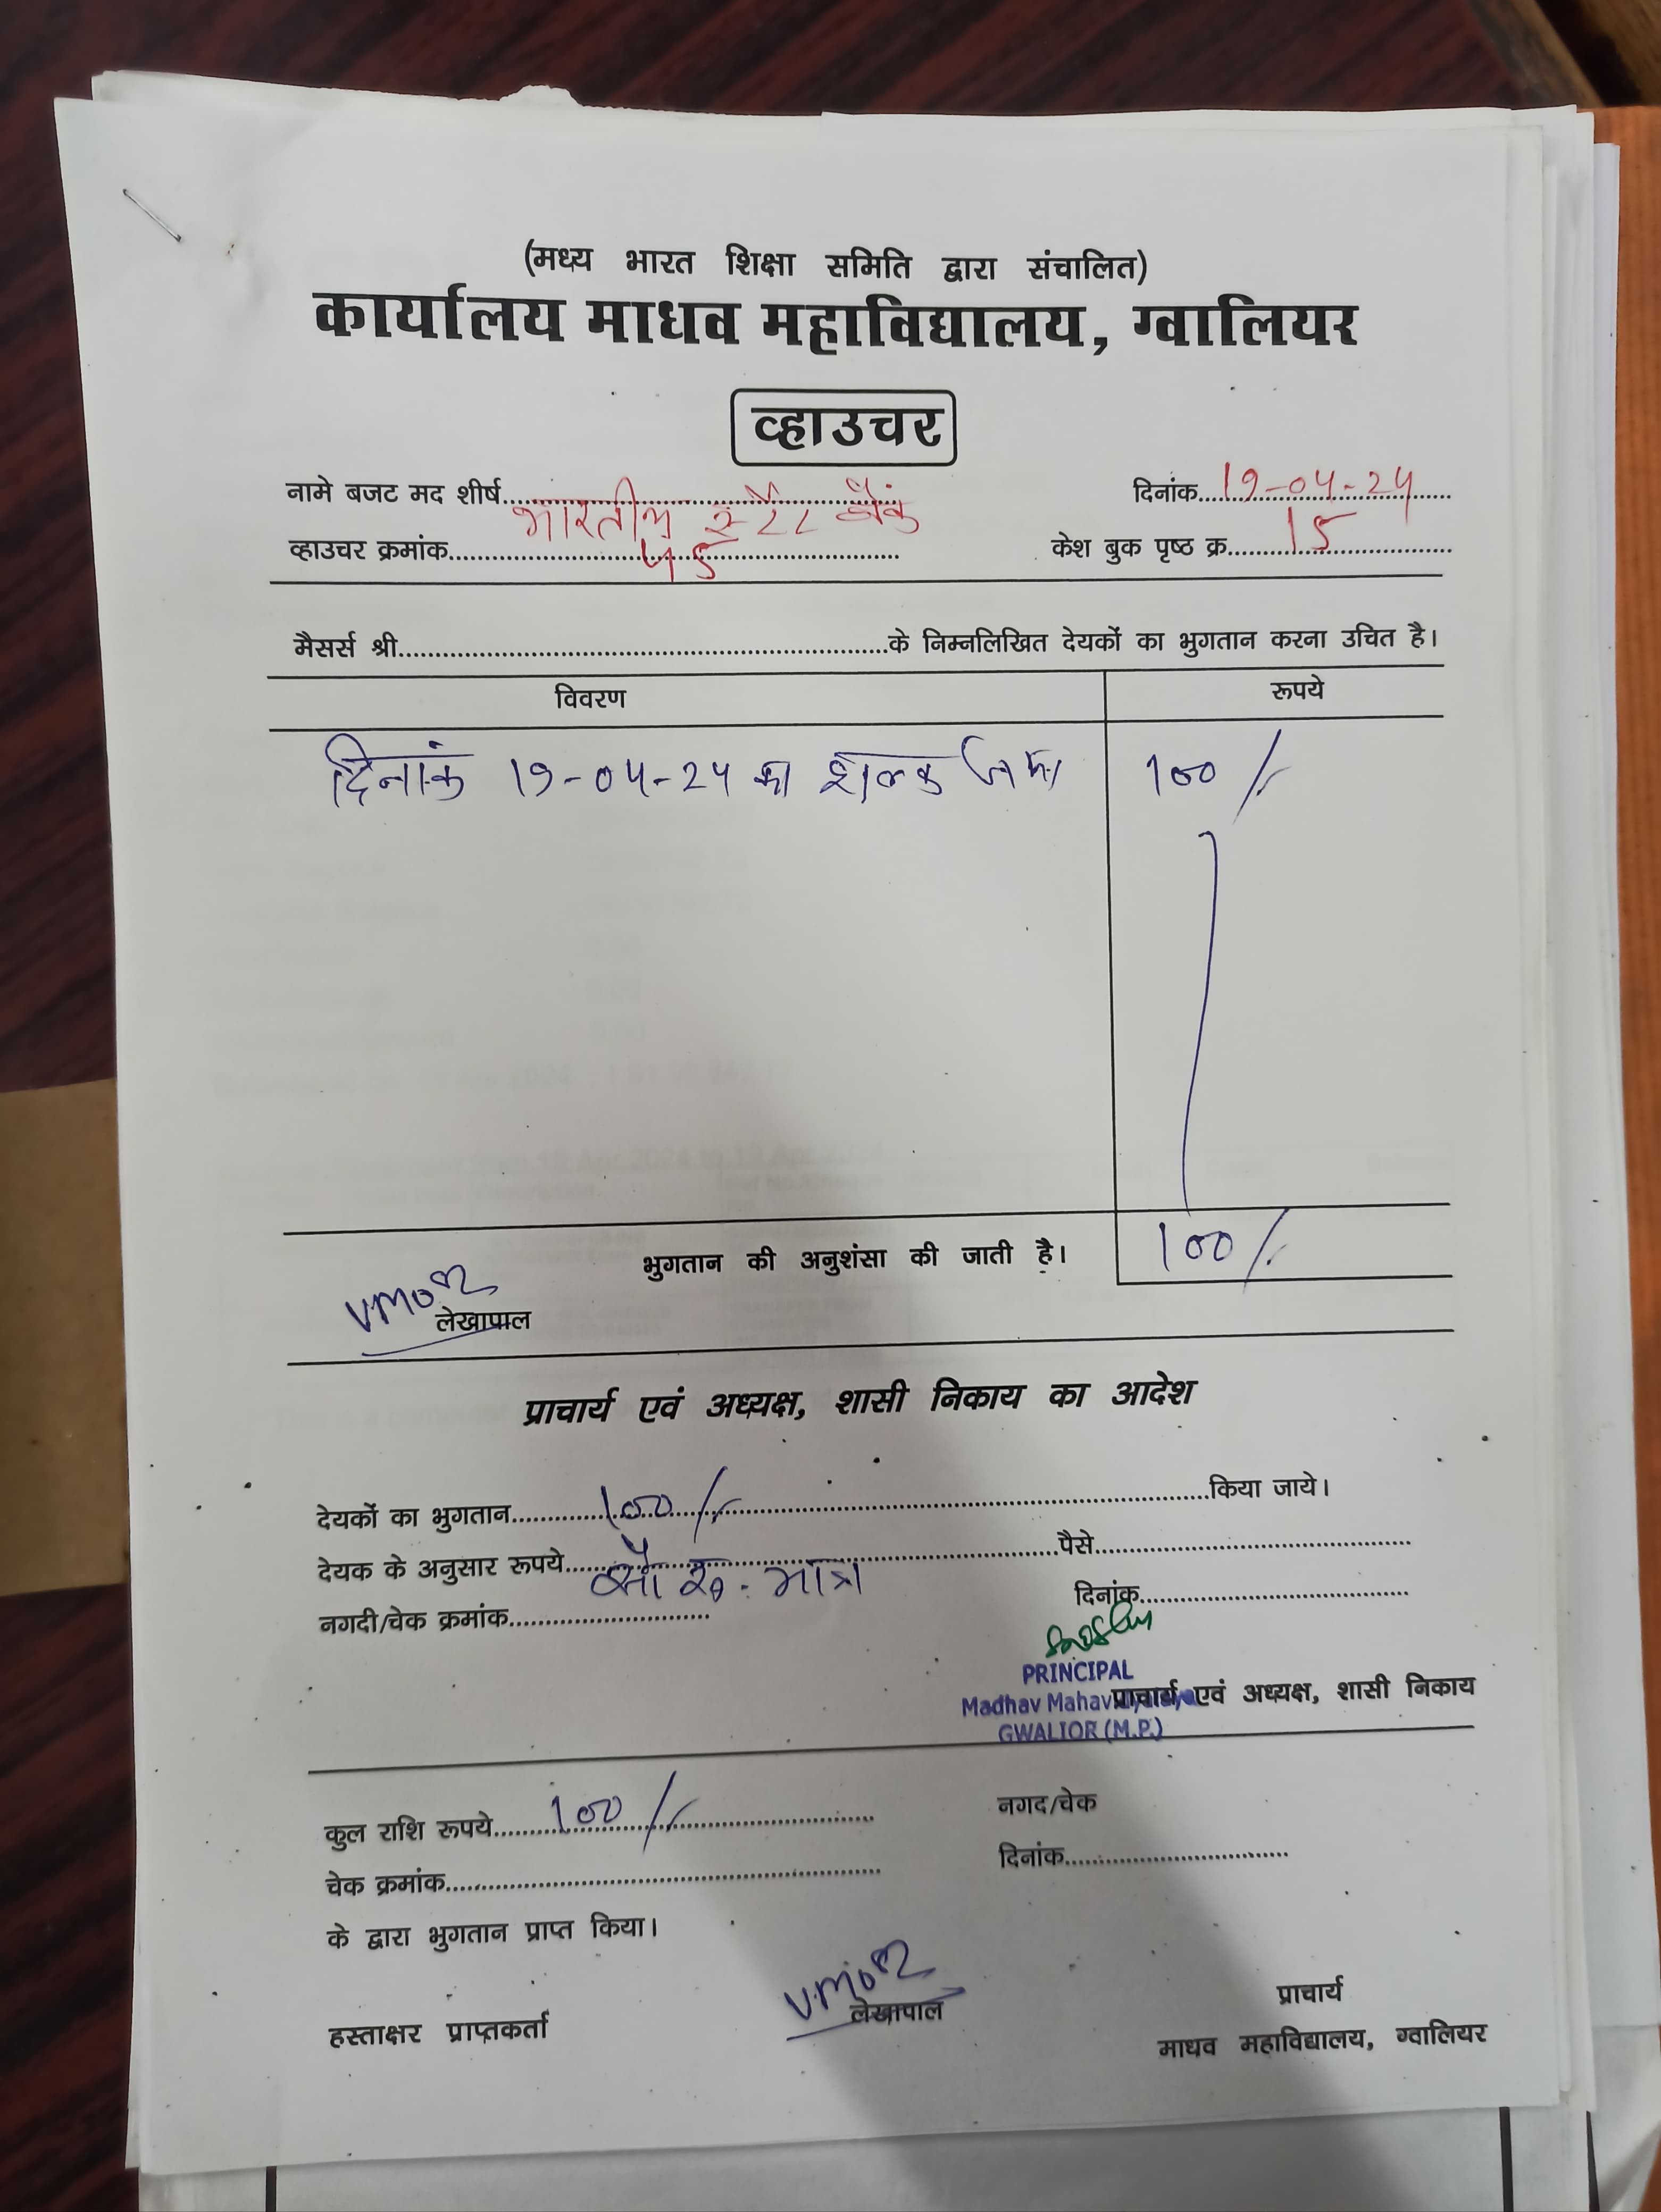 (मध्य भारत शिक्षा समिति द्वारा संचालित)
कार्यालय माधव महाविद्यालय, ग्वालियर
व्हाउचर
नामे बजट मद शीर्ष भारतीय स्टेट बैंक दिनांक 19-04-24
व्हाउचर क्रमांक 45 केश बुक पृष्ठ क्र. 15
मैसर्स श्री के निम्नलिखित देयकों का भुगतान करना उचित है।
विवरण रूपये
दिनांक 19-04-24 का शुल्क जमा 100/-
भुगतान की अनुशंसा की जाती है। 100/-
लेखापाल
प्राचार्य एवं अध्यक्ष, शासी निकाय का आदेश
देयकों का भुगतान 100/- किया जाये।
देयक के अनुसार रूपये सौ रू. मात्र पैसे
नगदी/चेक क्रमांक दिनांक
PRINCIPAL
Madhav Mahavidyalaya प्राचार्य एवं अध्यक्ष, शासी निकाय
GWALIOR (M.P.)
कुल राशि रूपये 100/- नगद/चेक
चेक क्रमांक दिनांक
के द्वारा भुगतान प्राप्त किया।
हस्ताक्षर प्राप्तकर्ता लेखापाल प्राचार्य
माधव महाविद्यालय, ग्वालियर